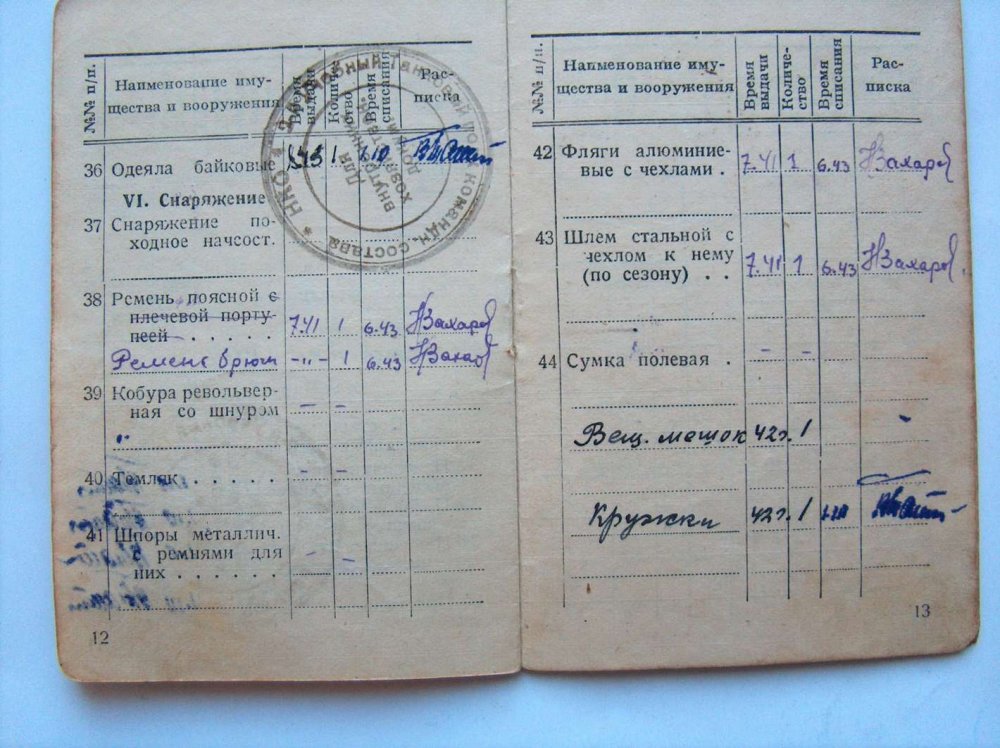 №№ п/п.
Наименование иму-
щества и вооружения
Время
выдачи
Количе-
ство
Время
списания
Рас-
писка
НКО
Танковый
командн. состава
Для
внутр.
хозяй.
36 Одеяла байковые
1
VI. Снаряжение
37 Снаряжение по-
ходное начсост.
38 Ремень поясной с
плечевой порту-
пеей . . . . . 7.41 1 6.43 НЗахаров
Ремень брючн -"- 1 6.43
39 Кобура револьвер-
ная со шнуром - -
"
40 Темляк . . . . . - -
41 Шпоры металлич.
с ремнями для - -
них . . . . . .
12
№№ п/п.
Наименование иму-
щества и вооружения
Время
выдачи
Количе-
ство
Время
списания
Рас-
писка
42 Фляги алюминие-
вые с чехлами . 7.41 1 6.43 НЗахаров
43 Шлем стальной с
чехлом к нему
(по сезону) . . 7.41 1 6.43 НЗахаров
44 Сумка полевая . - -
Вещ. мешок 42г. 1
Кружки 42г. 1
13